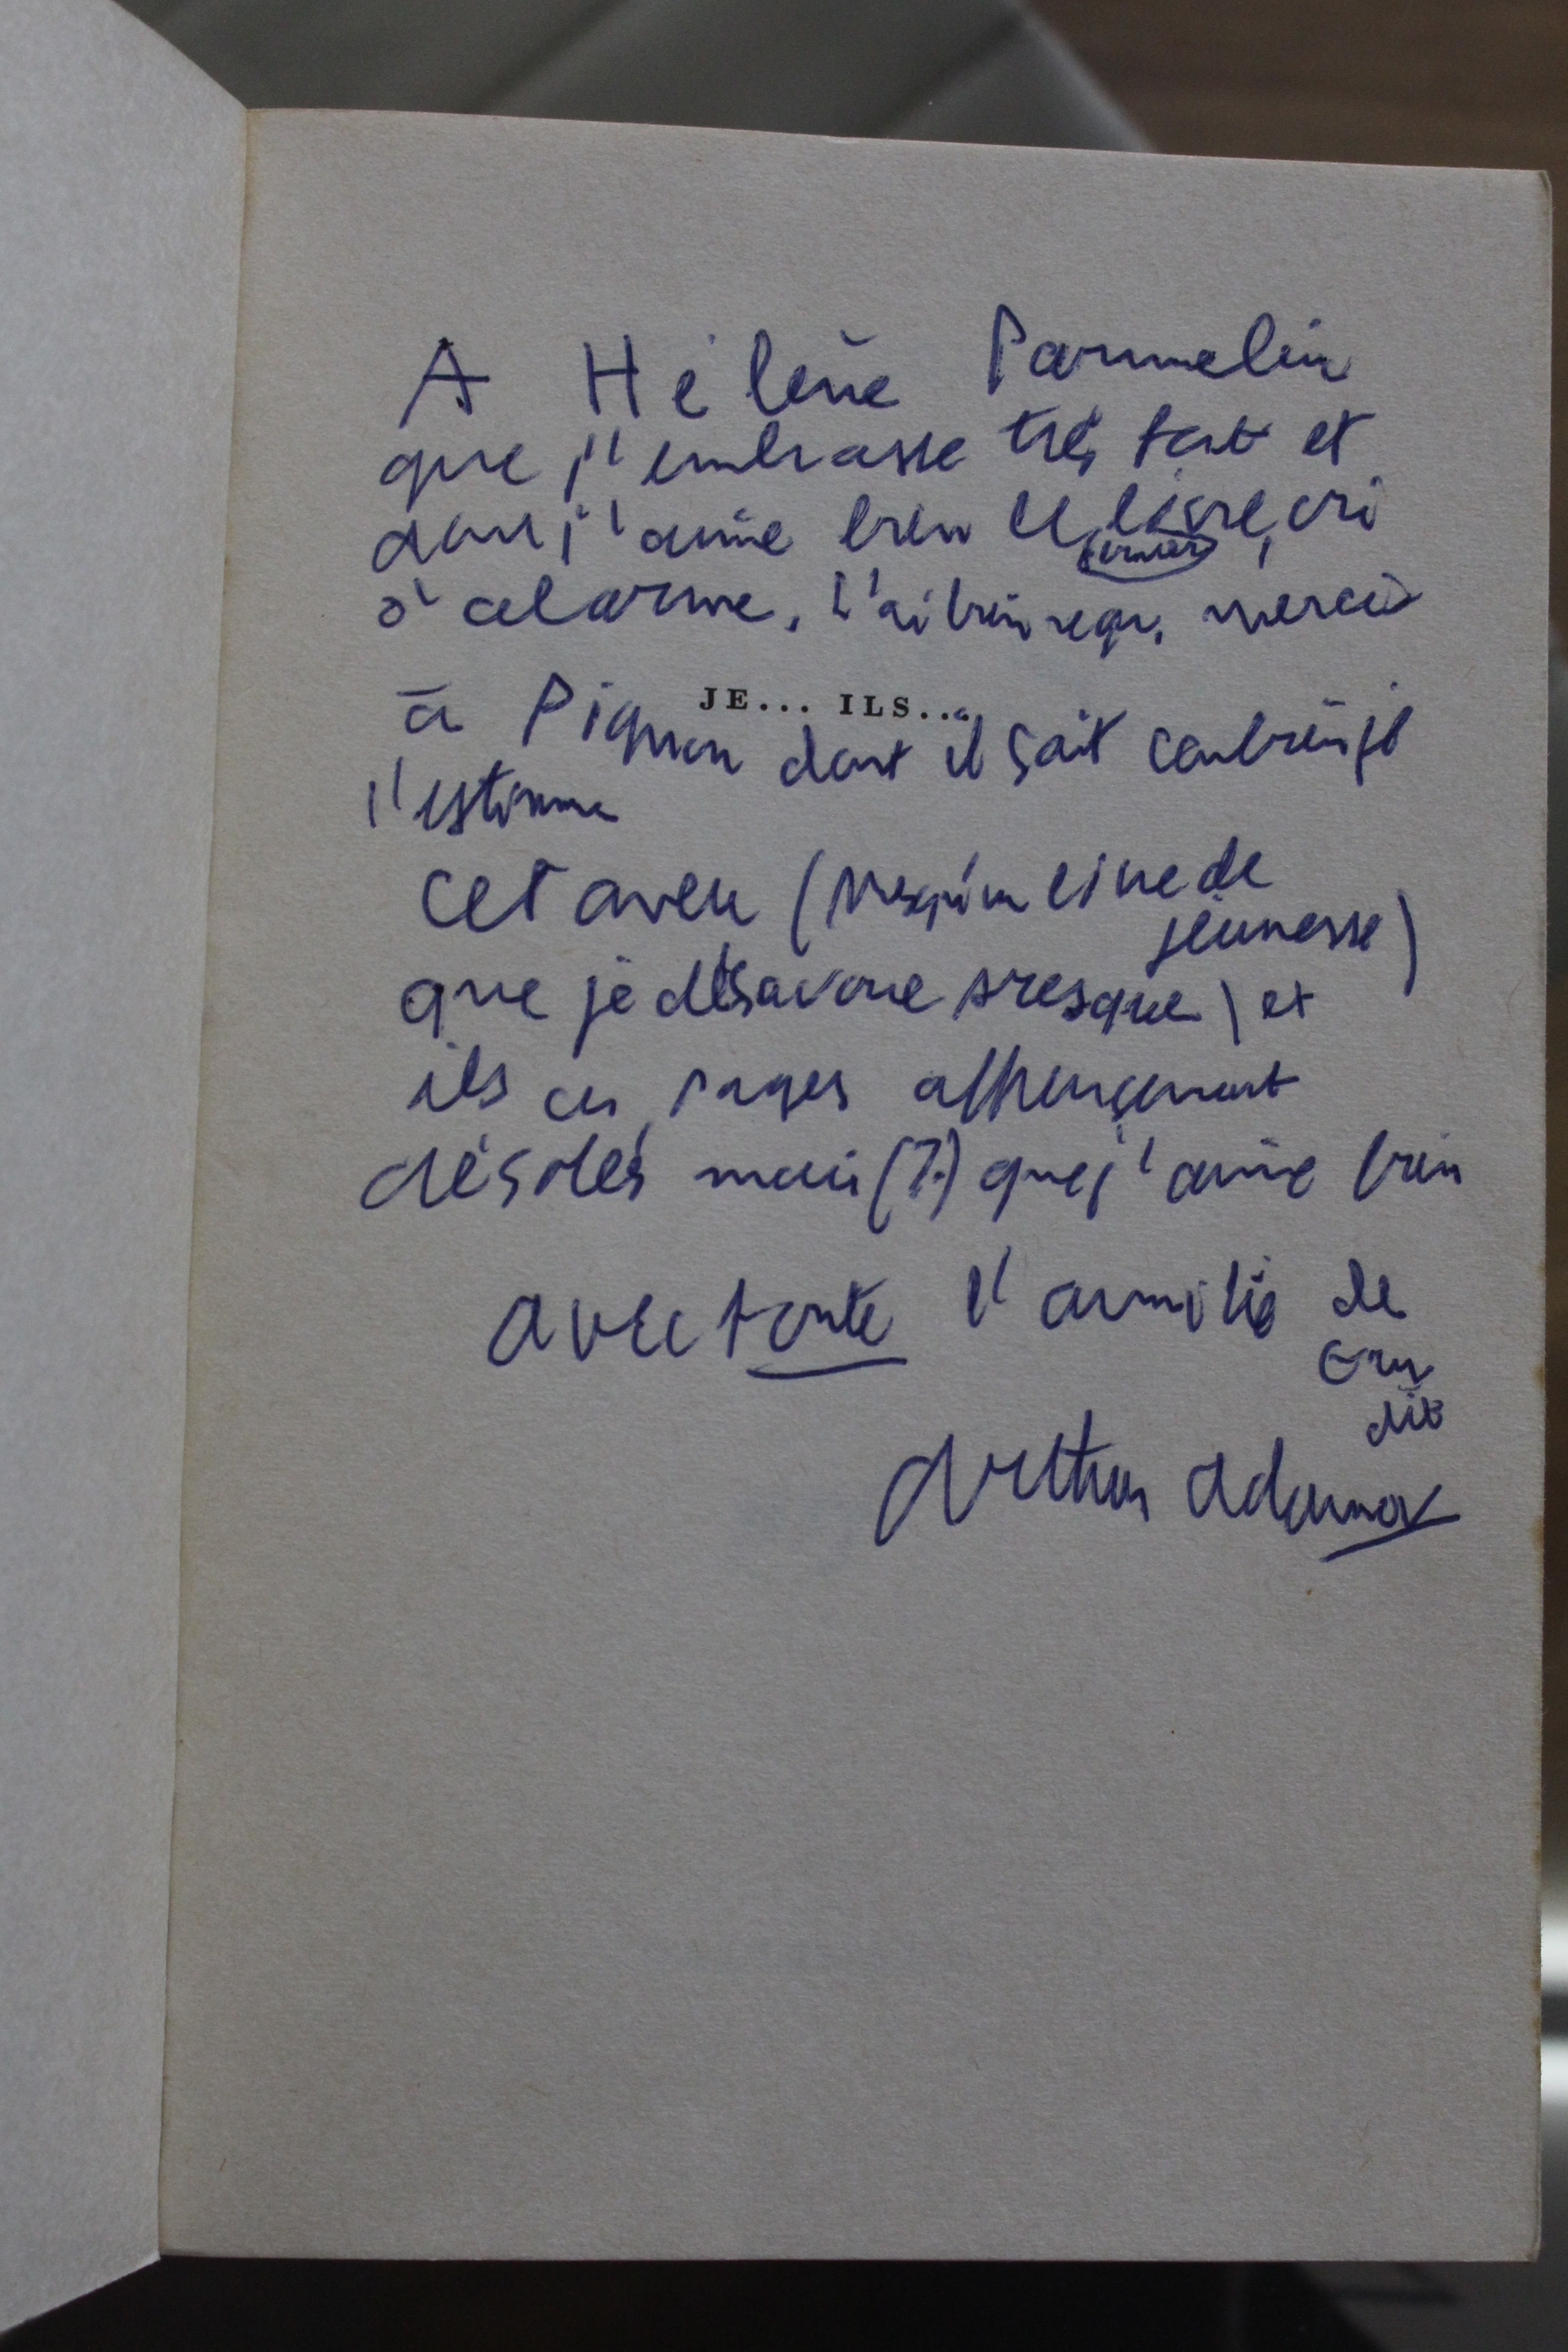 A Hélène Parmelin
que j'embrasse très fort et
dont j'aime bien le livre, cri
dernier
d'alarme, l'ai bien reçu, merci
à Pignon dont il sait combien je
JE... ILS...
l'estime
cet aveu ( livre de
jeunesse)
que je désavoue presque) et
ils ces pages affreusement
désolés mais (?) que j'aime bien
avec toute l'amitié de
Ern
dit
Arthur Adamov